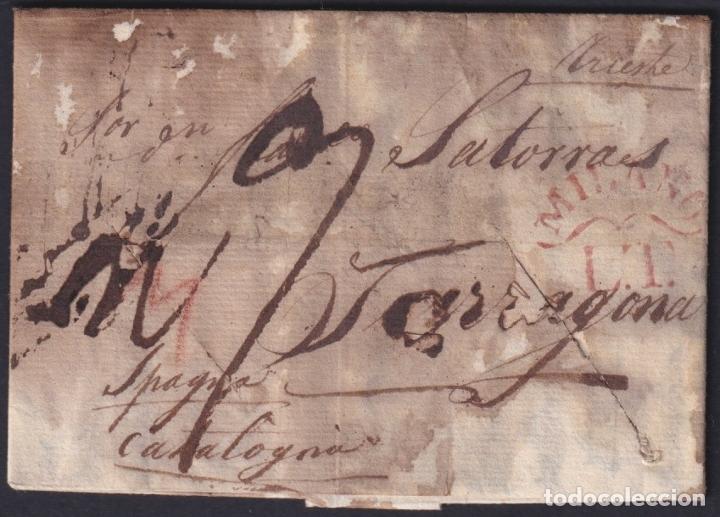 Trieste
Satorras
MILANO
L.T.
Tarragona
Spagna
Catalogna
todocoleccion.net